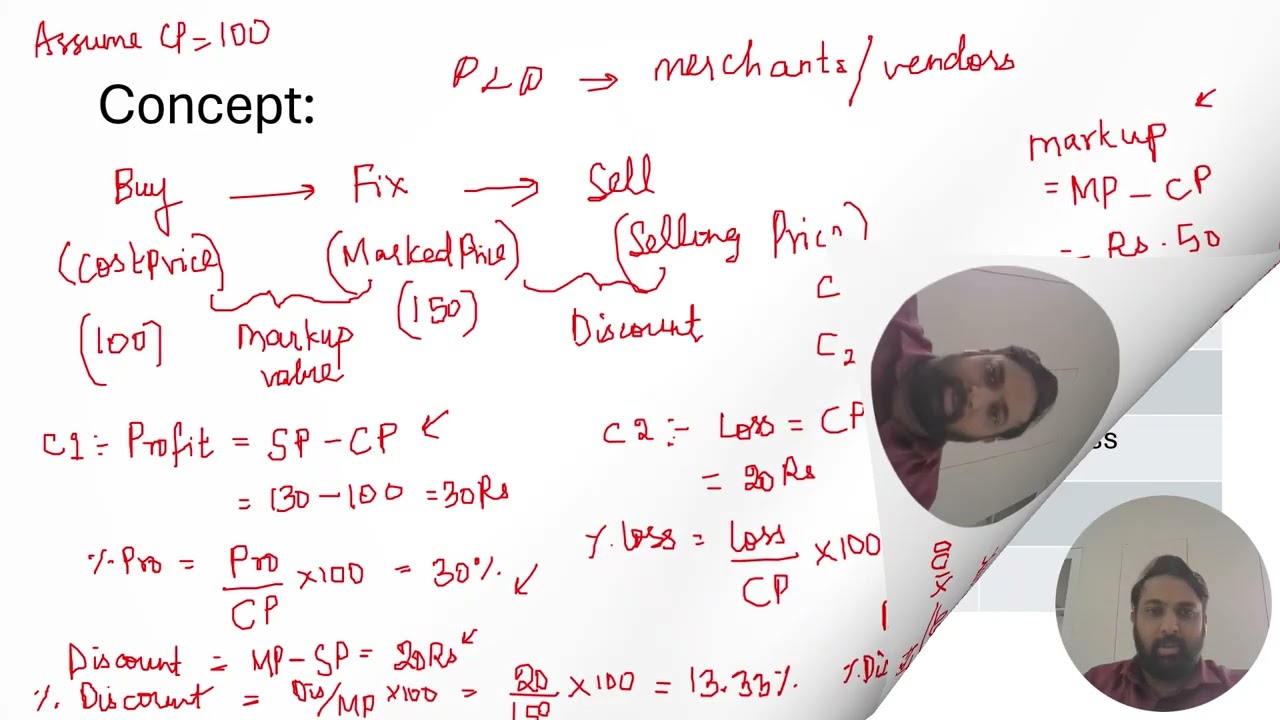 Assume CP = 100
Concept:
P L D → merchants/vendors
markup
= MP - CP
= Rs. 50
Buy → Fix → Sell
(CostPrice) (MarkedPrice)
(Selling
(100) (150)
markup value
Discount
C
C2
C1 :- Profit = SP - CP
= 130 - 100 = 30 Rs
% Pro = Pro/CP × 100 = 30%
C2 :- Loss = CP
= 20 Rs
% loss = loss/CP × 100
ss
Discount = MP - SP = 20 Rs
% Discount = Dis/MP × 100 = 20/150 × 100 = 13.33%